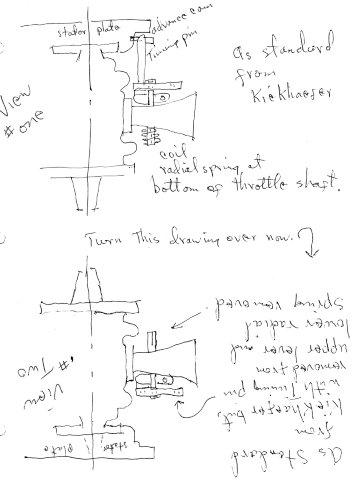 stator plate
advance cam
Timing pin
View
#one
as standard
from
Kiekhaefer
coil
radial spring at
bottom of throttle shaft.
Turn This drawing over now.
View
#Two
stator plate
as Standard
from
Kiekhaefer but,
with Timing pin
removed from
upper lever and
lower radial
Spring removed.